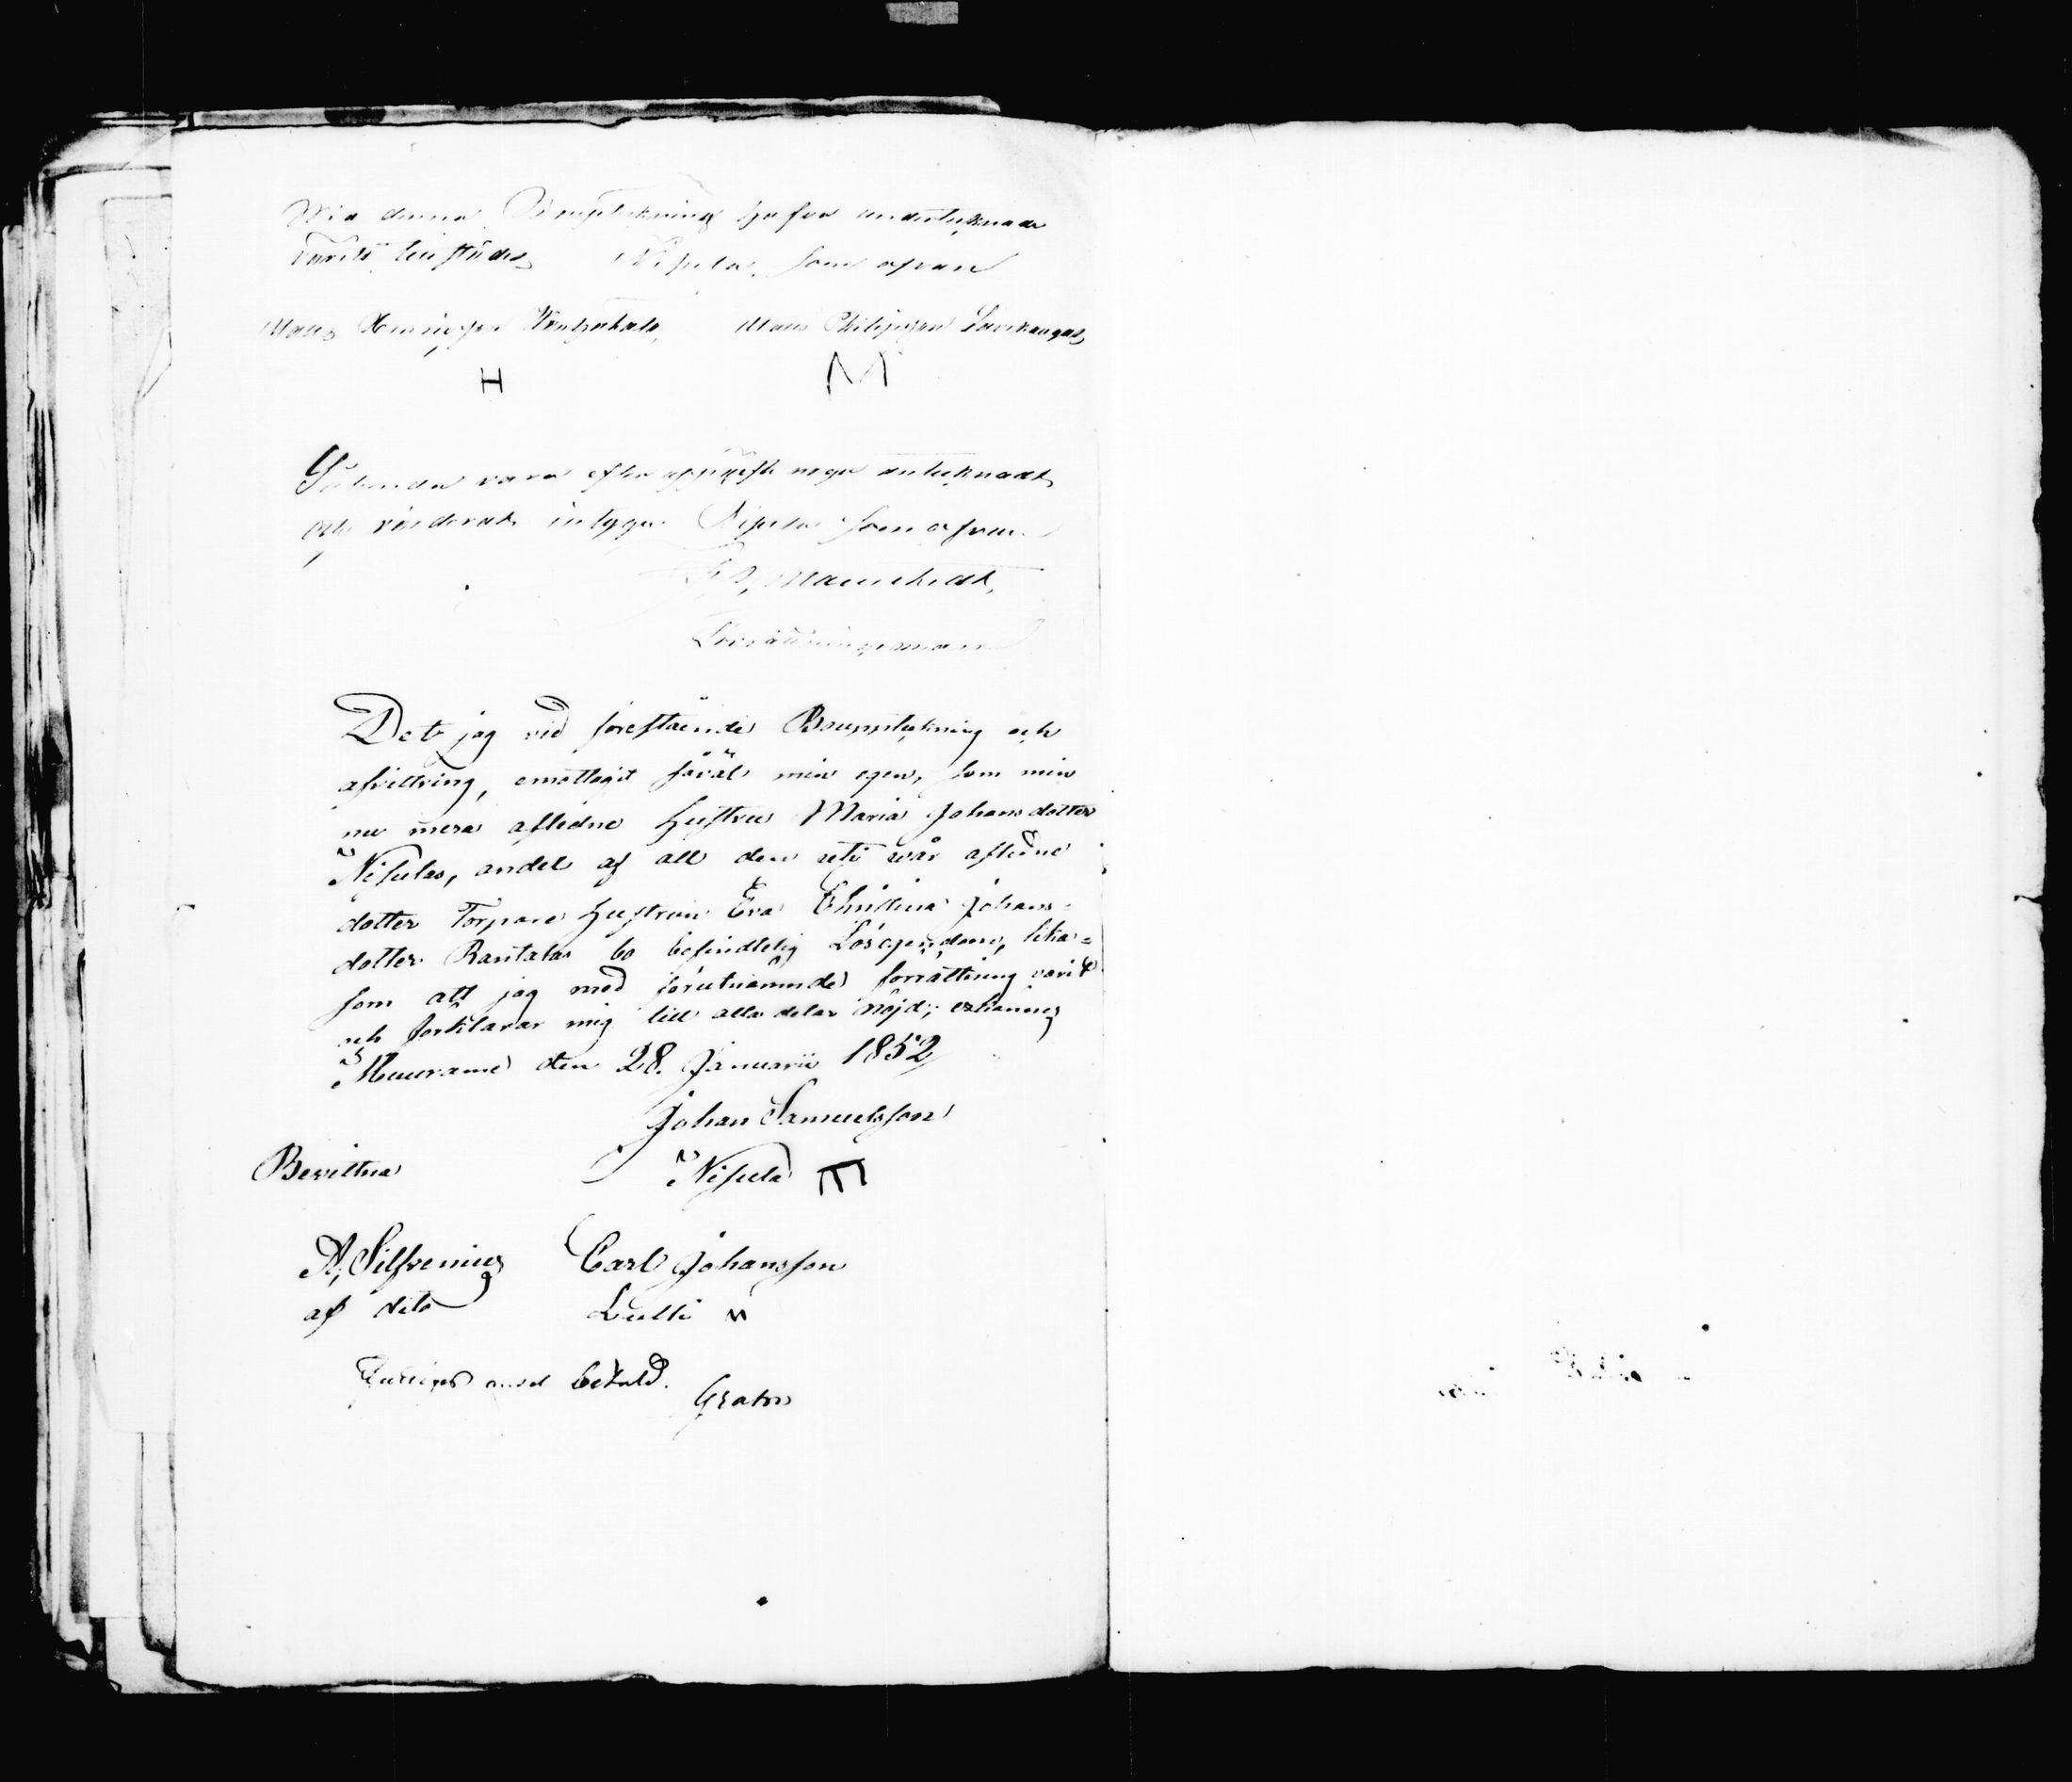 Wid denna Boupteckning hafva undertecknade
varit tillstädes, Nisula, som ofvan
Matts Henricsson Mats Philipsson Lavikangas
H M
Sålunda vara efter uppgift noga antecknadt
och värderadt intygar Nisula som ofvan.
Förrättningsman
Det jag vid förestående Bouppteckning och
afvittring, emottagit såväl min egen, som min
nu mera aflidne hustru Maria Johansdotter
Nisulas, andel af all den uti wår aflidne
dotter Torpare hustrun Eva Christina Johans=
dotter Rantalas bo befindtelig Lösegendom, lika=
som att jag med förutnämnde förrättning varit
och förklarar mig till alla delar nöjd; erkännes
Muurame den 28. Januarii 1852
Johan Samuelsson
Bevittna Nisula
A, Silfvenius Carl Johansson
af dito Lulli
betald.
Gratis